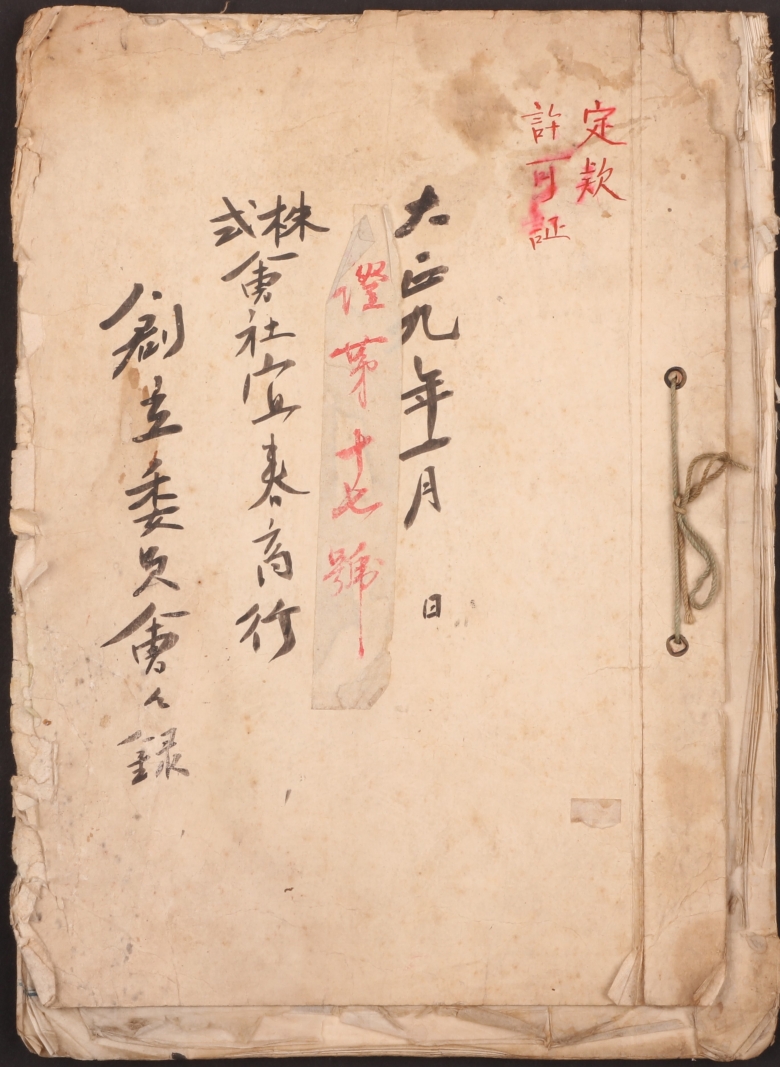 定款
許可証
大正九年一月　日
證第十七號
株式會社宜春商行
創立委員會々録